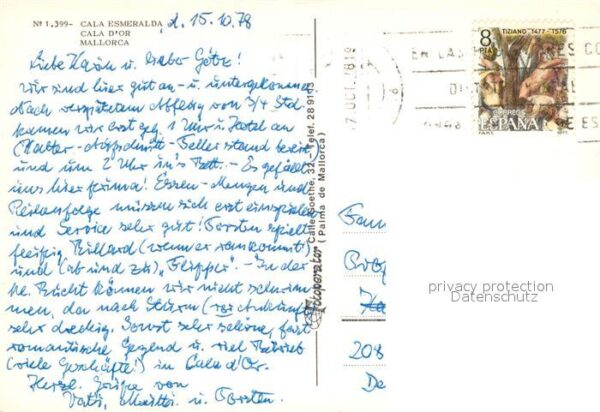 Nº 1.399- CALA ESMERALDA
CALA D'OR
MALLORCA
d. 15.10.78
Liebe Karin u. lieber Götz!
Wir sind hier gut an- u. untergekommen.
Nach verspätetem Abflug von 3/4 Std.
kamen wir erst geg. 1 Uhr u. Hotel an
(Kalter-Aufschnitt-Teller stand bereit)
und um 2 Uhr in's Bett. - Es gefällt
uns hier prima! Essen-Mengen und
Reihenfolge müssen sich erst einspielen
und Service sehr gut! Torsten spielt
fleißig Billard (wenn er rankommt)
und (ab und zu) "Flipper". - In der
kl. Bucht können wir nicht schwim-
men, da nach Sturm (vor Ankunft)
sehr dreckig. Sonst sehr schöne, fast
romantische Gegend u. viel Betrieb
(viele Geschäfte!) in Cala d'Or.
Herzl. Grüße von
Vati, Mutti u. Torsten.
Fotoperator Calle Goethe, 32 - Telef. 289113
(Palma de Mallorca)
TIZIANO 1477-1576
8
PTAS
CORREOS
ESPAÑA
OCT. 1978
EN LAS
Fam
208
privacy protection
Datenschutz